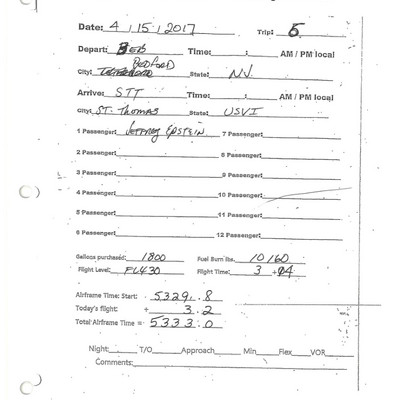 Date: 4/15/2017 Trip: 5
Depart: BED Time: : AM / PM local
BEDFORD
City: State: NJ
Arrive: STT Time: : AM / PM local
City: ST. THOMAS State: USVI
1 Passenger: JEFFREY EPSTEIN 7 Passenger:
2 Passenger: 8 Passenger:
3 Passenger: 9 Passenger:
4 Passenger: 10 Passenger:
5 Passenger: 11 Passenger:
6 Passenger: 12 Passenger:
Gallons purchased: 1800 Fuel Burn lbs. 10160
Flight Level: FL430 Flight Time: 3 +04
Airframe Time: Start: 5329.8
Today's flight: + 3.2
Total Airframe Time = 5333.0
Night: T/O Approach Min Flex VOR
Comments: